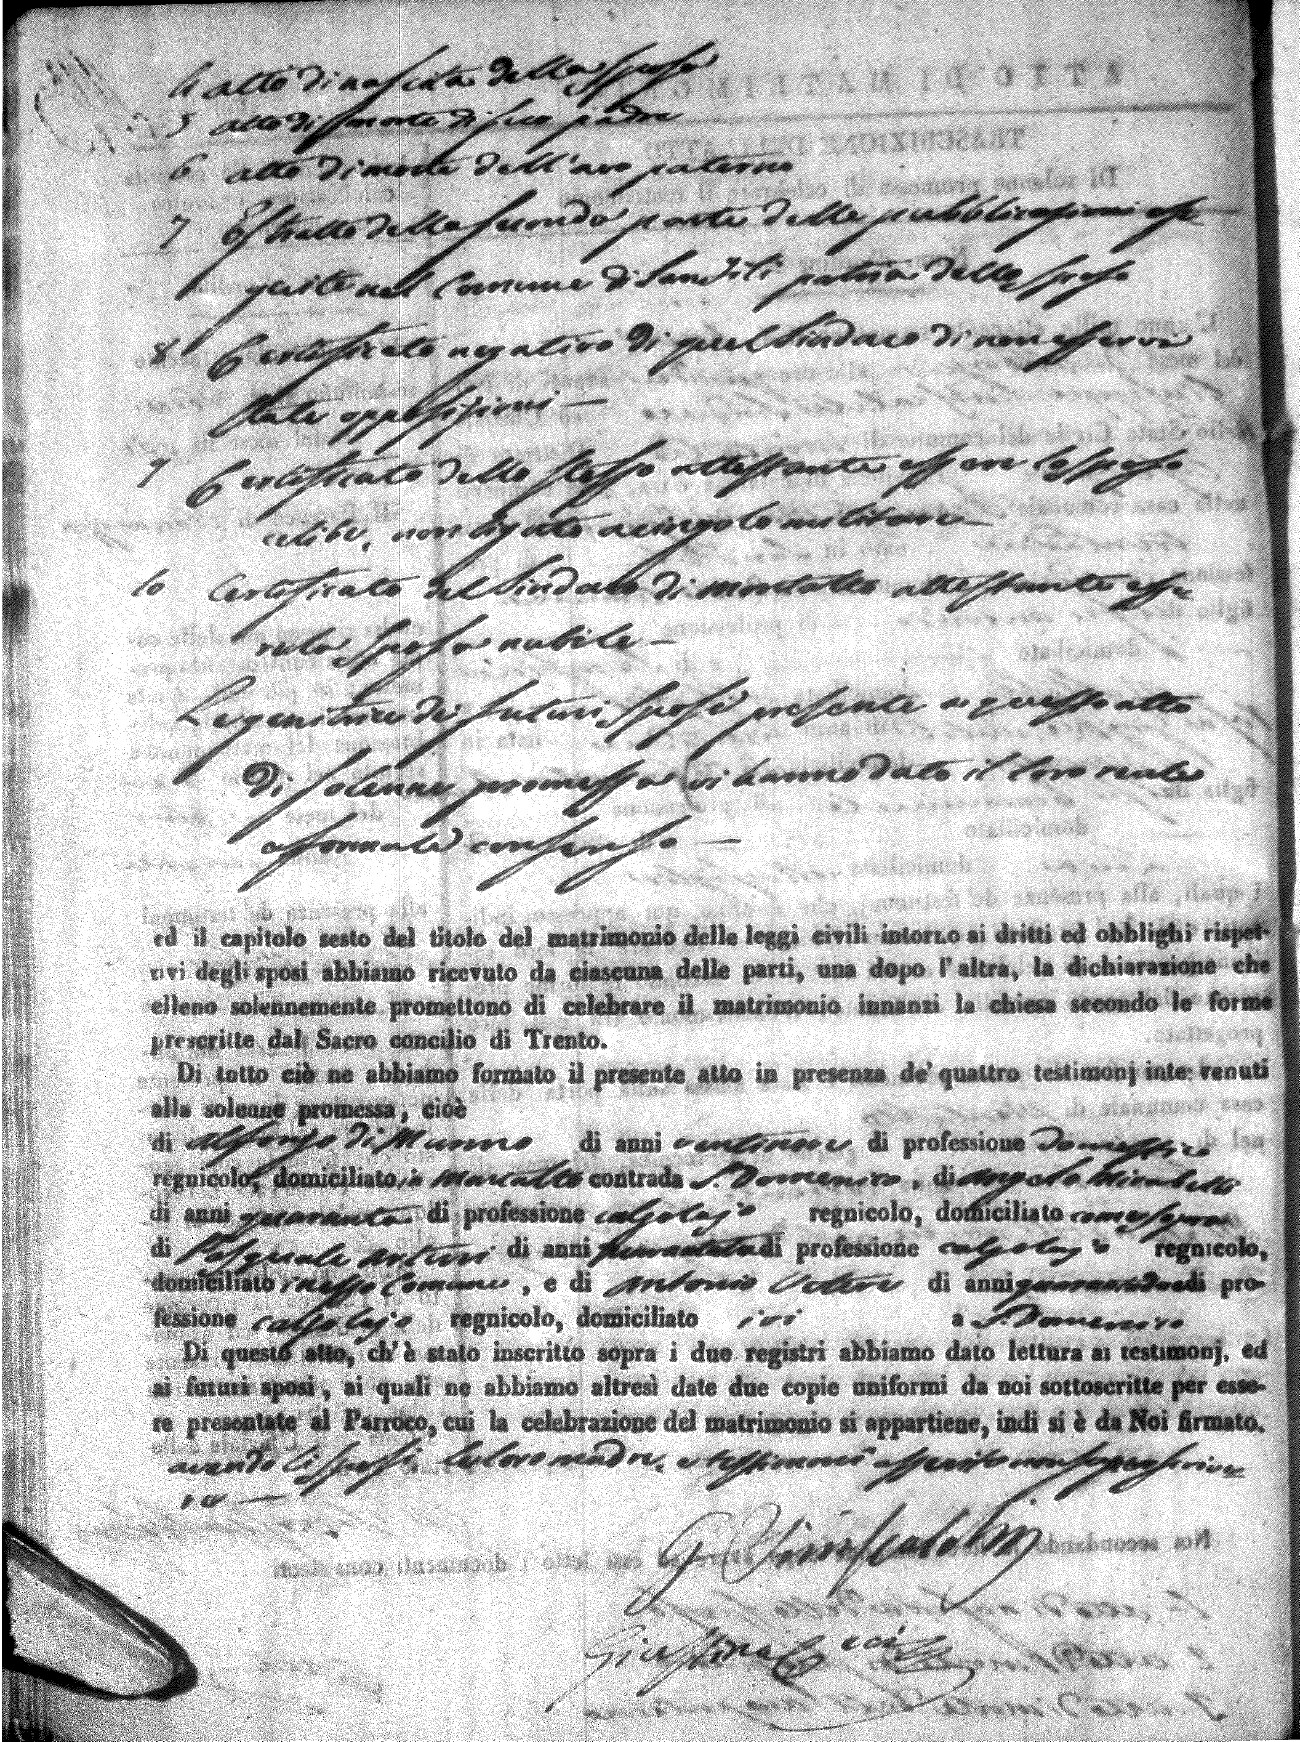 4 atto di nascita della sposa
5 atto di morte di suo padre
6 atto di morte dell'avo paterno
7 Estratto della seconda parte delle pubblicazioni ese
guite nel Comune di Sanfili patria dello sposo
8 Certificato negativo di quel Sindaco di non esservi
state opposizioni —
9 Certificato dello stesso attestante essere lo sposo
celibe, non legato a cingolo militare —
10 Certificato del Sindaco di Montalto attestante esse
re la sposa nubile —
Le genitrici de' futuri sposi presente a questo atto
di solenne promessa vi hanno dato il loro reale
e formale consenso —
ed il capitolo sesto del titolo del matrimonio delle leggi civili intorno ai dritti ed obblighi rispet-
tivi degli sposi abbiamo ricevuto da ciascuna delle parti, una dopo l'altra, la dichiarazione che
elleno solennemente promettono di celebrare il matrimonio innanzi la chiesa secondo le forme
prescritte dal Sacro concilio di Trento.
Di tutto ciò ne abbiamo formato il presente atto in presenza de' quattro testimonj intervenuti
alla solenne promessa, cioè
di Alfonzo Di Munno di anni ventinove di professione domestico
regnicolo, domiciliato in Montalto contrada S. Domenico, di Angelo Mirabelli
di anni quaranta di professione calzolajo regnicolo, domiciliato come sopra
di Pasquale Anturi di anni di professione calzolajo regnicolo,
domiciliato in esso Comune, e di Antonio di anni quarantadue di pro-
fessione calzolajo regnicolo, domiciliato ivi a S. Domenico
Di questo atto, ch'è stato inscritto sopra i due registri abbiamo dato lettura ai testimonj, ed
ai futuri sposi, ai quali ne abbiamo altresì date due copie uniformi da noi sottoscritte per esse-
re presentate al Parroco, cui la celebrazione del matrimonio si appartiene, indi si è da Noi firmato,
avendo li sposi, le loro madri, e testimoni asserito non saper scrive
re —
G
Giustina Ceci